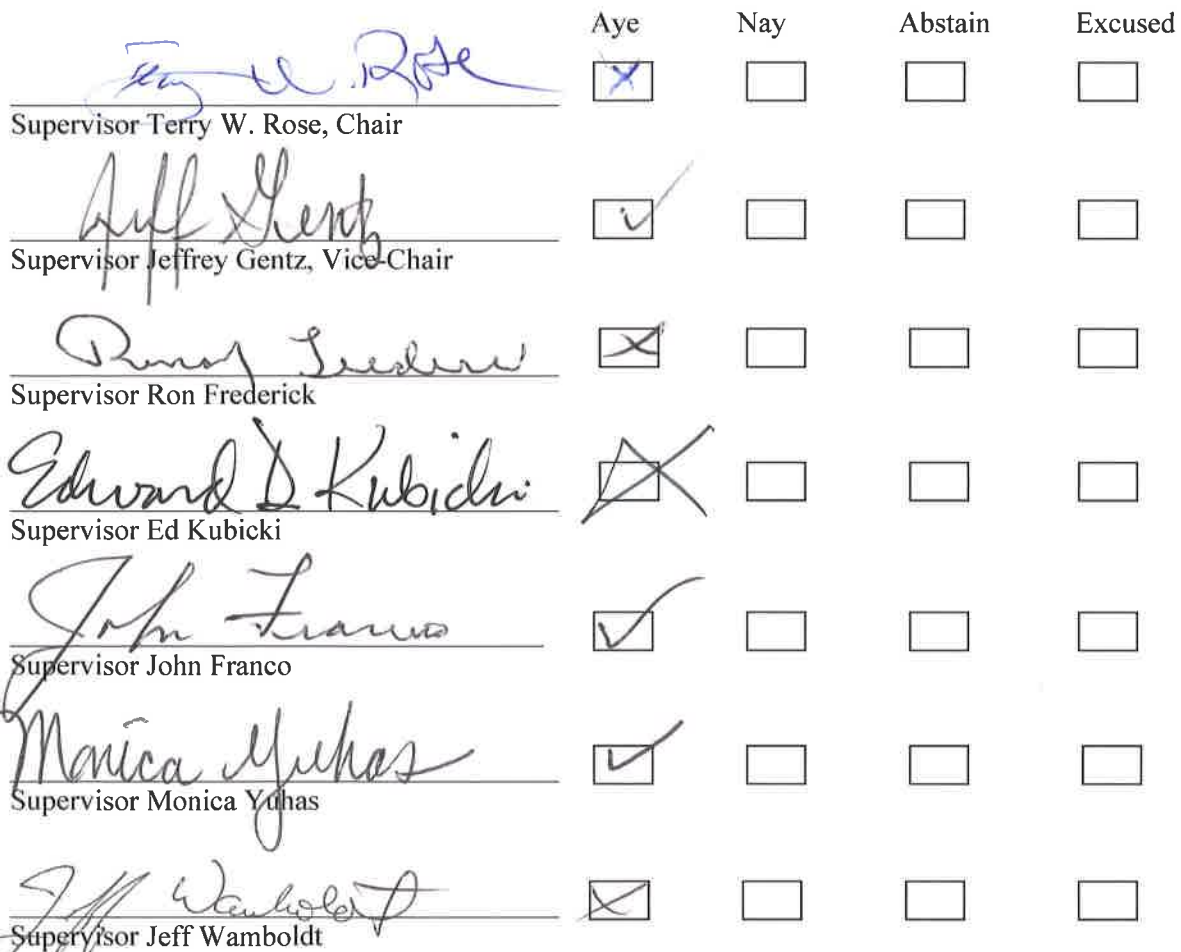 Aye Nay Abstain Excused
Terry W. Rose
Supervisor Terry W. Rose, Chair
Jeff Gentz
Supervisor Jeffrey Gentz, Vice-Chair
Supervisor Ron Frederick
Edward D Kubicki
Supervisor Ed Kubicki
John Franco
Supervisor John Franco
Monica Yuhas
Supervisor Monica Yuhas
Jeff Wamboldt
Supervisor Jeff Wamboldt